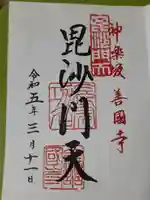 神楽坂 善國寺
毘沙門天
令和五年三月十一日